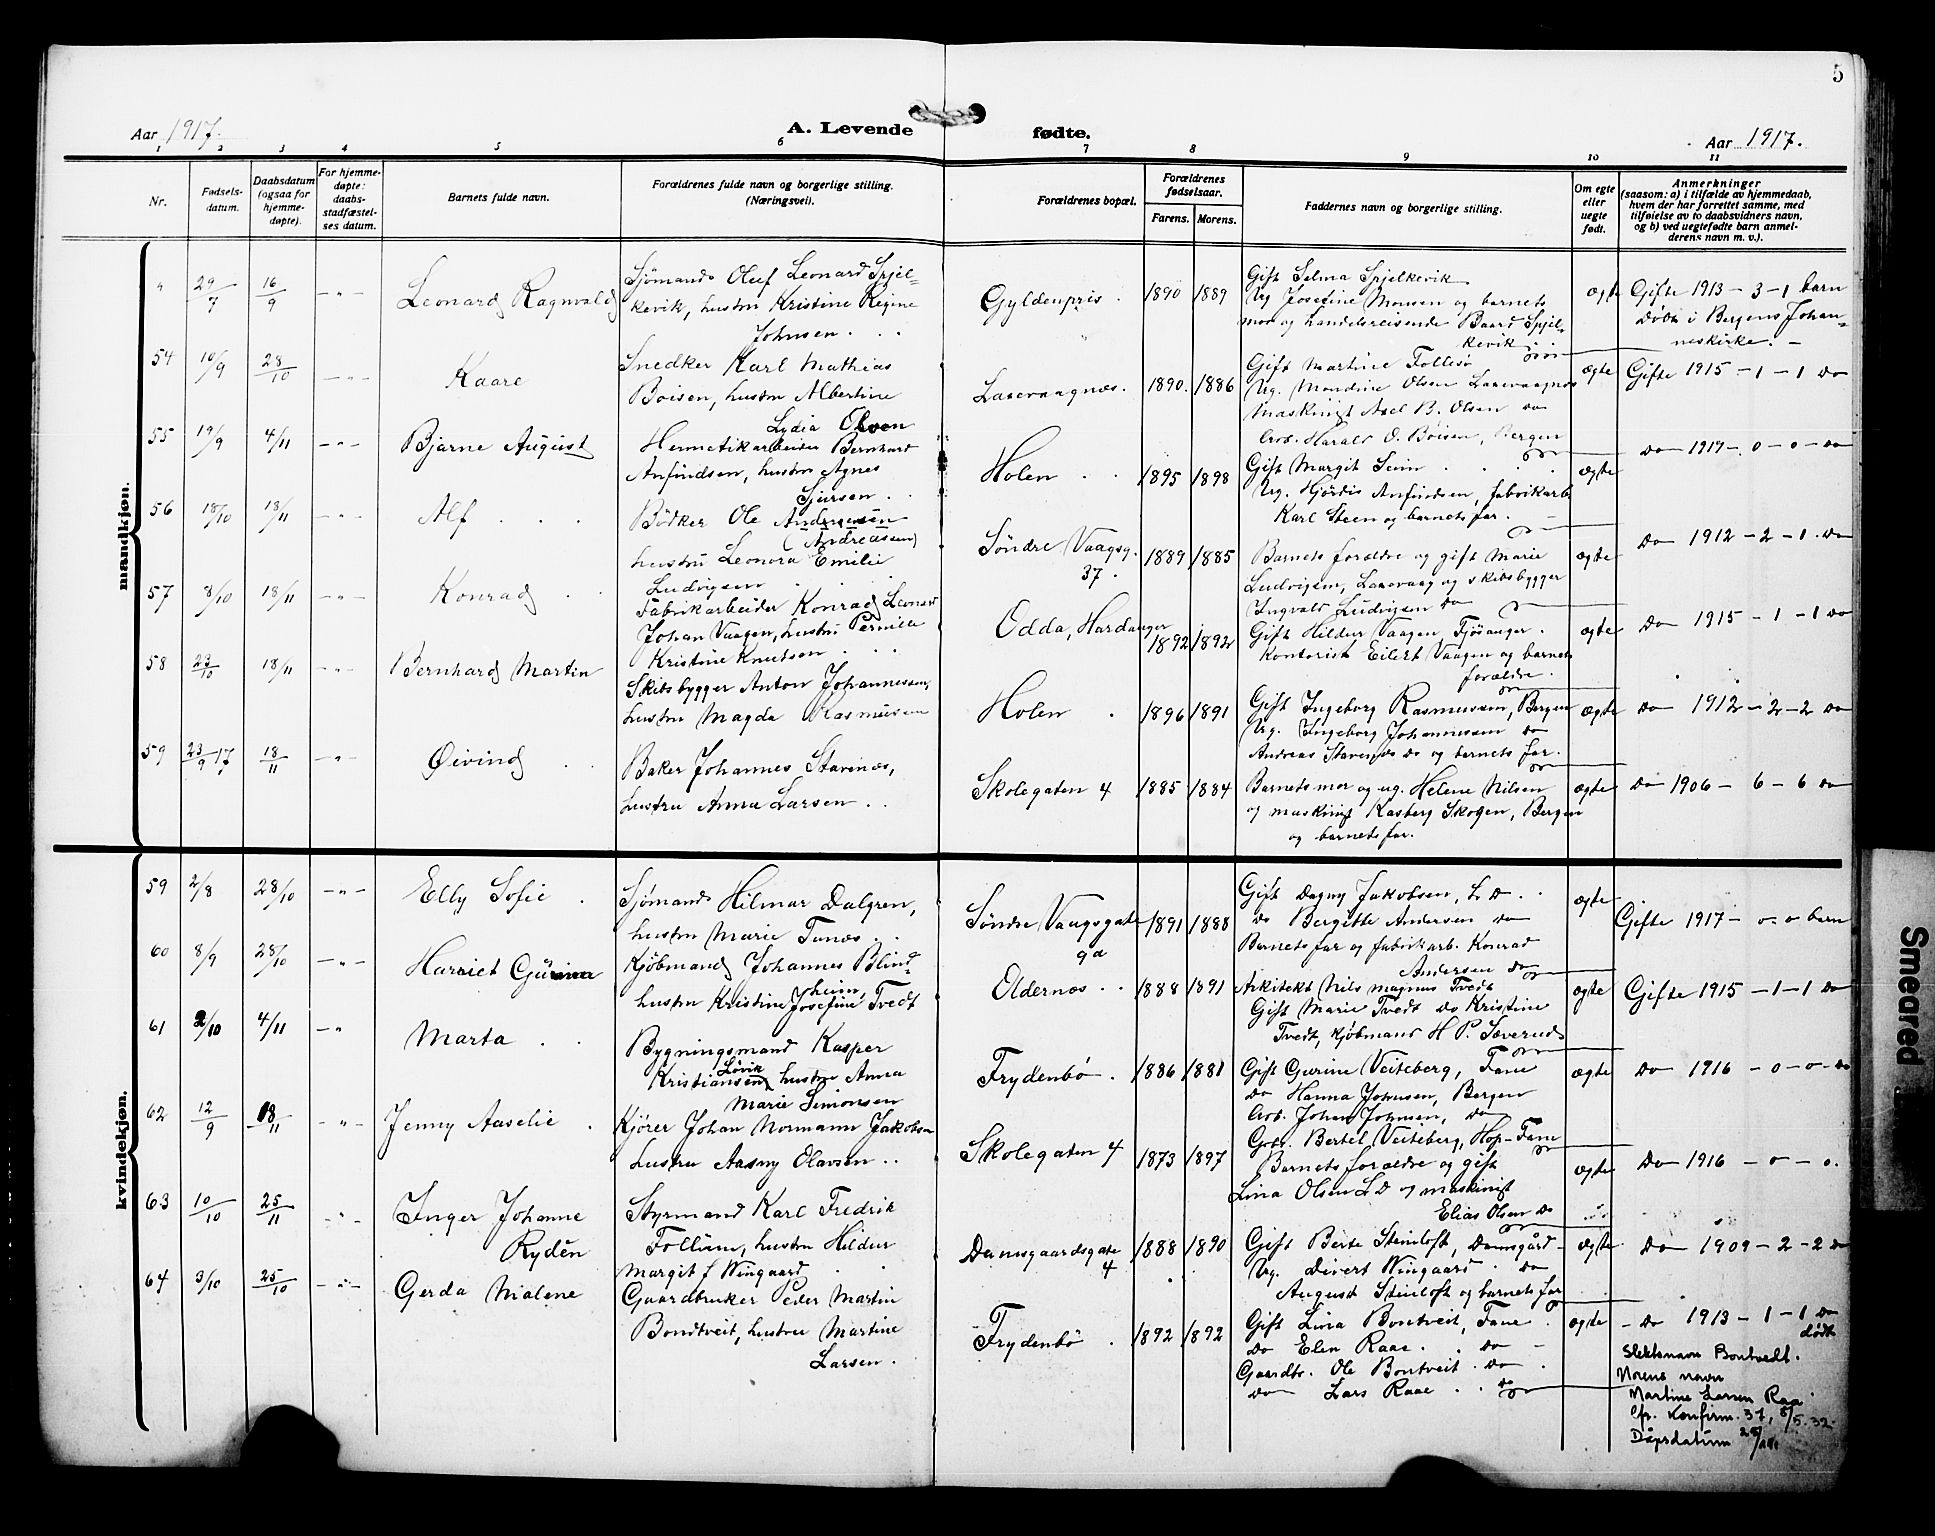 5
Aar 1917.
A. Levende fødte.
Aar 1917.
1 2 3 4 5 6 7 8 9 10 11
Nr.
Fødsels-
datum.
Daabsdatum
(ogsaa for
hjemme-
døpte).
For hjemme-
døpte:
daabs-
stadfæstel-
ses datum.
Barnets fulde navn.
Forældrenes fulde navn og borgerlige stilling.
(Næringsvei).
Forældrenes bopæl.
Forældrenes
fødselsaar.
Farens. Morens.
Faddernes navn og borgerlige stilling.
Om egte
eller
uegte
født.
Anmerkninger
(saasom: a) i tilfælde av hjemmedaab,
hvem der har forrettet samme, med
tilføielse av to daabsvidners navn,
og b) ved uegtefødte barn anmel-
derens navn m. v.).
mandkjøn.
" 29/7 16/9 -"- Leonard Ragnvald
Sjömand Oluf Leonard Spjel-
kevik, hustru Kristine Regine
Johnsen . . .
Gyldenpris . 1890 1889
Gift Selma Spjelkevik
Ug Josefine Monsen og barnets
mor og handelsreisende Baard Spjel-
kevik
ægte
Gifte 1913 - 3 - 1 barn
Døbt i Bergens Johan-
neskirke. -
54 10/9 28/10 -"- Kaare
Snedker Karl Mathias
Boisen, hustru Albertine
Lydia Olsen
Laxevaagnæs. 1890. 1886
Gift Martine Follesø
Ug. Mondine Olsen Laxevaagnæs
Maskinist Axel B. Olsen do
Arb. Harald O. Böisen, Bergen
ægte
Gifte 1915 - 1 - 1 do
55 19/9 4/11 -"- Bjarne August
Hermetikarbeider Bernhard
Anfindsen, hustru Agnes
Sjursen . .
Holen . . 1895 1898
Gift Margit Seim . . .
Ug. Hjördis Anfindsen, fabrikarb.
Karl Steen og barnets far. -
ægte
do 1917 - 0 - 0 - do
56 18/10 18/11 -"- Alf . . .
Bödker Ole Andersen
(Andreassen)
hustru Leonora Emilie
Ludvigsen
Söndre Vaagsg.
37. 1889 1885
Barnets forældre og gift Marie
Ludvigsen, Laxevaag og skibsbygger
Ingvald Ludvigsen do
ægte
do 1912 - 2 - 1. do
57 8/10 18/11 -"- Konrad . .
Fabrikarbeider Konrad Leonard
Johan Vaagen, hustru Pernille
Kristine Knutsen . . .
Odda, Hardanger 1892 1892
Gift Hildur Vaagen, Fjösanger.
Kontorist Eilert Vaagen og barnets
forældre.
ægte
do 1915 - 1 - 1 do
58 23/10 18/11 -"- Bernhard Martin
Skibsbygger Anton Johannessen,
hustru Magda Rasmussen
Holen . 1896 1891
Gift Ingeborg Rasmussen, Bergen
Ug. Ingeborg Johannessen do
Andreas Stavenæs do og barnets far.
ægte
do 1912 - 2 - 2 do
59 23/9 17. 18/11 -"- Øivind . .
Baker Johannes Stavenæs,
hustru Anna Larsen . .
Skolegaten 4 1885 1884
Barnets mor og ug. Helene Nilsen
og maskinist Rasberg Skogen, Bergen
og barnets far.
ægte
do 1906 - 6 - 6 do
kvindekjøn.
59 2/8 28/10 -"- Elly Sofie .
Sjömand Hilmar Dalgren,
hustru Marie Tunæs . .
Söndre Vaagsgate
9a 1891 1888
Gift Dagny Jakobsen, L D . .
do Bergitte Andersen do
Barnets far og fabrikarb. Konrad
Andersen do
ægte
Gifte 1917 - 0 - 0 barn
60 8/9 28/10 -"- Harriet Gurine
Kjöbmand Johannes Blind-
heim,
hustru Kristine Josefine Tvedt
Eldernæs . . 1888 1891
Arkitekt Nils Magnus Tvedt
Gift Marie Tvedt do Kristine
Tvedt, Kjöbmand H P. Sæverud
ægte
Gifte 1915 - 1 - 1 do
61 2/10 4/11 -" Marta . .
Bygningsmand Kasper
Løvik
Kristiansen, hustru Anna
Marie Simonsen
Frydenbø . 1886 1881
Gift Gurine Veiteberg, Fane
do Hanna Johnsen, Bergen
Arb. Johan Johnsen, do
Gbr. Bertel Veiteberg, Hop - Fane
ægte
do 1916 - 0 - 0 - do
62 12/9 18/11 -"- Jenny Aaselie .
Kjörer Johan Normann Jakobsen
hustru Aasny Olavsen . .
Skolegaten 4 1873 1897
Barnets forældre og gift
Lina Olsen L D og maskinist
Elias Olsen do
ægte
do 1916 - 0 - 0.
63 10/10 25/11 -"- Inger Johanne
Rydén
Styrmand Karl Fredrik
Follien, hustru Hildur
Margit f Wingaard . .
Damsgaardsgate
4 1888 1890
Gift Berte Steinloft, Damsgård -
Ug. Divert Wingaard . do
August Steinloft og barnets far
ægte
do 1909 - 2 - 2 do
64 3/10 25/10 -"- Gerda Malene
Gaardbruker Peder Martin
Bondtveit, hustru Martine
Larsen .
Frydenbö . 1892 1892
Gift Lina Bontveit, Fane .
do Elen Raae . . do -
Gaardbr. Ole Bontveit . do .
do Lars Raae . . do
ægte
- do 1913 - 1 - 1 do
dødt
Slektsnavn Bontvedt.
Morens navn
Martine Larsen Raa
Cfr. Konfirm. 37, 8/5.32.
Dåpsdatum
Smeared